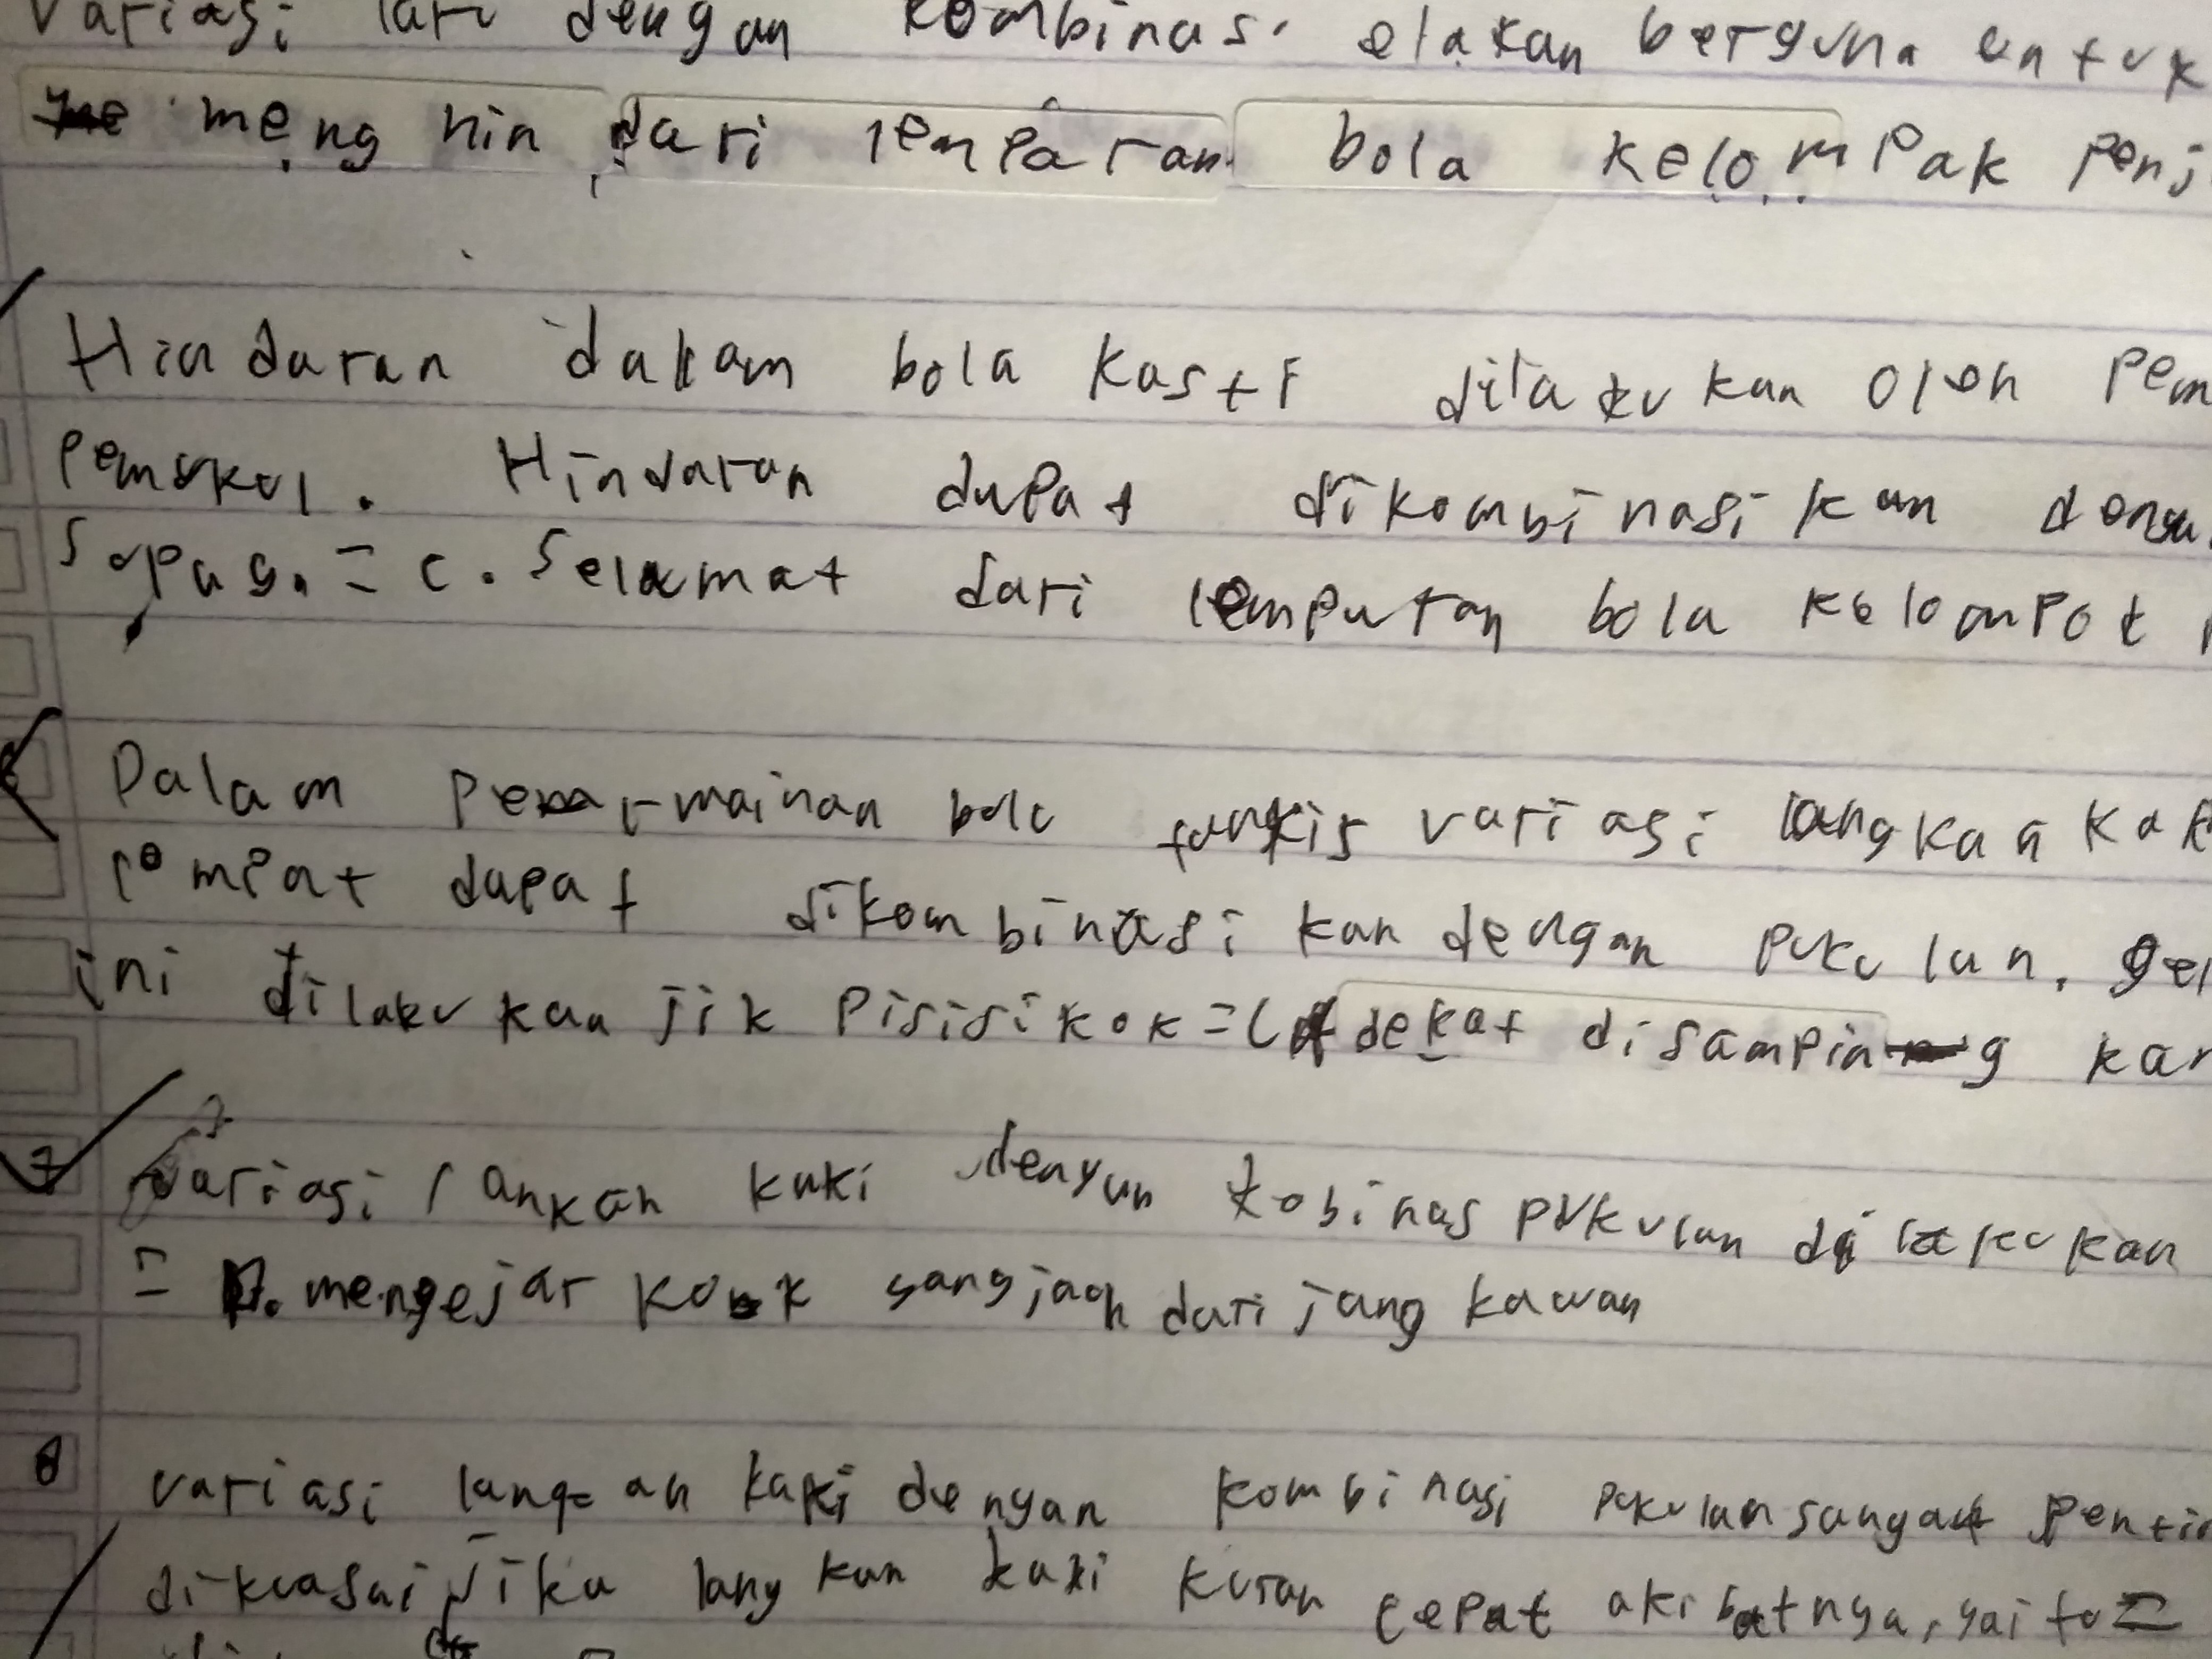 variasi lari dengan kombinasi elakan berguna untuk
meng hin dari lemparan bola kelompak penj
Hindaran dalam bola kasti dilakukan oleh pem
pemukul. Hindaran dapat dikombinasikan denga
supaya = c. Selamat dari lemputan bola kelompot
Dalam permainan bola tangkis variasi langkah kak
tempat dapat dikombinasi kan dengan pukulan. ger
ini dilakukan jik Pisisikok = C dekat disamping kar
7 variasi lankah kaki dengan kobinas pukulan dilakukan
= mengejar kok yang jaoh dari jang kawan
8 variasi langkah kaki dengan kombinasi pukulan sangat pentin
dikuasai jika langkan kaki kuran cepat akibatnya, yaitu =